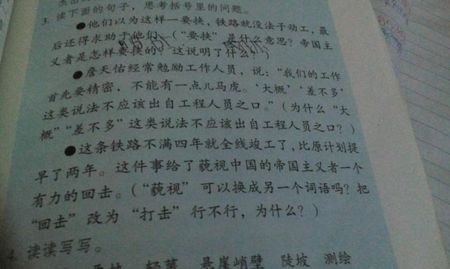 3. 读下面的句子,思考括号里的问题。
●他们以为这样一要挟,铁路就没法子动工,最
后还得求助于他们。(“要挟”是什么意思?帝国主
义者是怎样要挟的?这说明了什么?)
●詹天佑经常勉励工作人员,说:“我们的工作
首先要精密,不能有一点儿马虎。‘大概’‘差不多’
这类说法不应该出自工程人员之口。”(为什么“大
概”“差不多”这类说法不应该出自工程人员之口?)
●这条铁路不满四年就全线竣工了,比原计划提
早了两年。这件事给了藐视中国的帝国主义者一个
有力的回击。(“藐视”可以换成另一个词语吗?把
“回击”改为“打击”行不行,为什么?)
4. 读读写写。
悬崖峭壁 陡坡 测绘